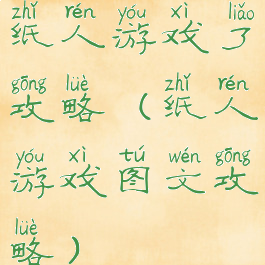 zhǐ rén yóu xì liǎo
纸人游戏了
gōng lüè zhǐ rén
攻略(纸人
yóu xì tú wén gōng
游戏图文攻
lüè
略)